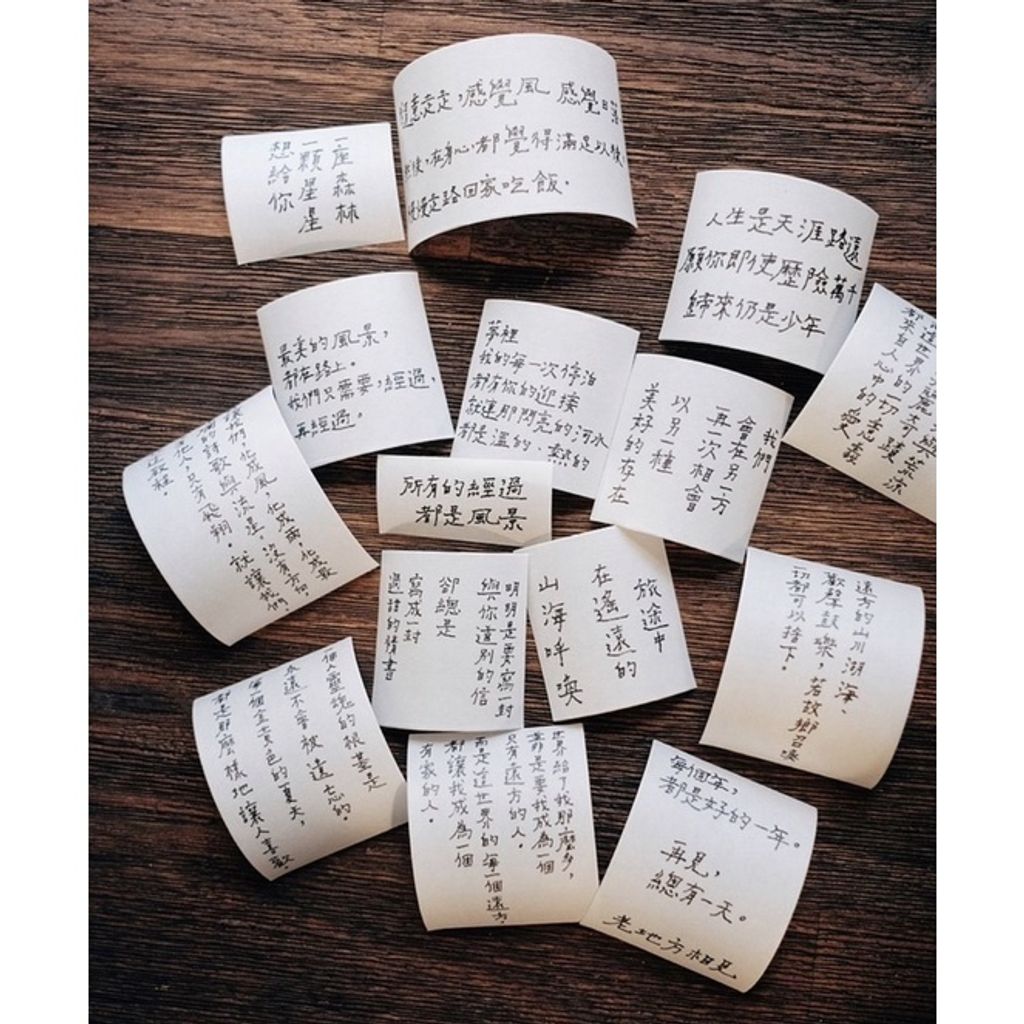 一座森林
一顆星星
想給你
隨意走走，感覺風 感覺日落
然後，在身心都覺得滿足以後
慢慢走路回家吃飯。
人生是天涯路遠
願你即使歷險萬千
歸來仍是少年
最美的風景，
都在路上。
我們只需要，經過，
再經過。
夢裡
我的每一次停泊
都有你的迎接
就連那閃亮的河水
都是溫的、熱的
我們
會在另一方
再一次相會
以另一種
美好的存在
都來自人心中的
一切志趣
愛、靈
讓我們，化成風，化成雨，化成最
的詩歌與流星，沒有方向，
他人，只有飛翔。就讓我們
所有的經過
都是風景
明明是要寫一封
與你道別的信
卻總是
寫成一封
邀請的情書
旅途中
在遙遠的
山海呼喚
遠方的山川湖海、
歡聲鼓樂，若故鄉召喚
一切都可以捨下。
一個人靈魂的根基是
永遠不會被遺忘的。
每一個金黃色的夏天，
都是那麼樣地讓人喜歡。
世界給了我那麼多，
並那是要我成為一個
只有遠方的人。
而是這世界的每一個遠方，
都讓我成為一個
有家的人。
每個年，
都是好的一年。
再見，
總有一天。
老地方相見